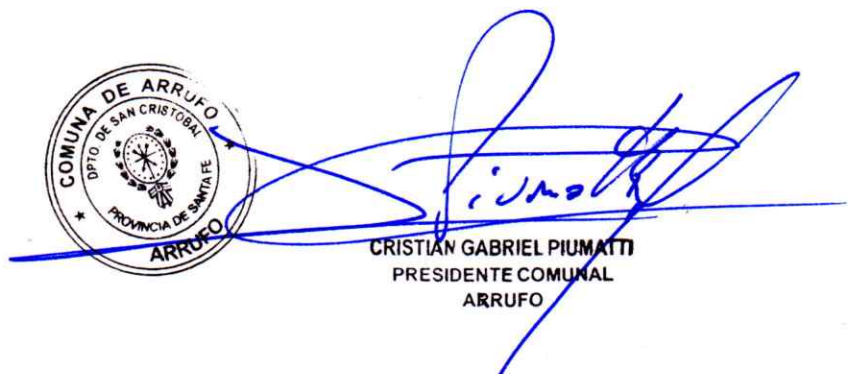 COMUNA DE ARRUFO
DPTO. DE SAN CRISTOBAL
PROVINCIA DE SANTA FE
ARRUFO
Piumatti
CRISTIAN GABRIEL PIUMATTI
PRESIDENTE COMUNAL
ARRUFO